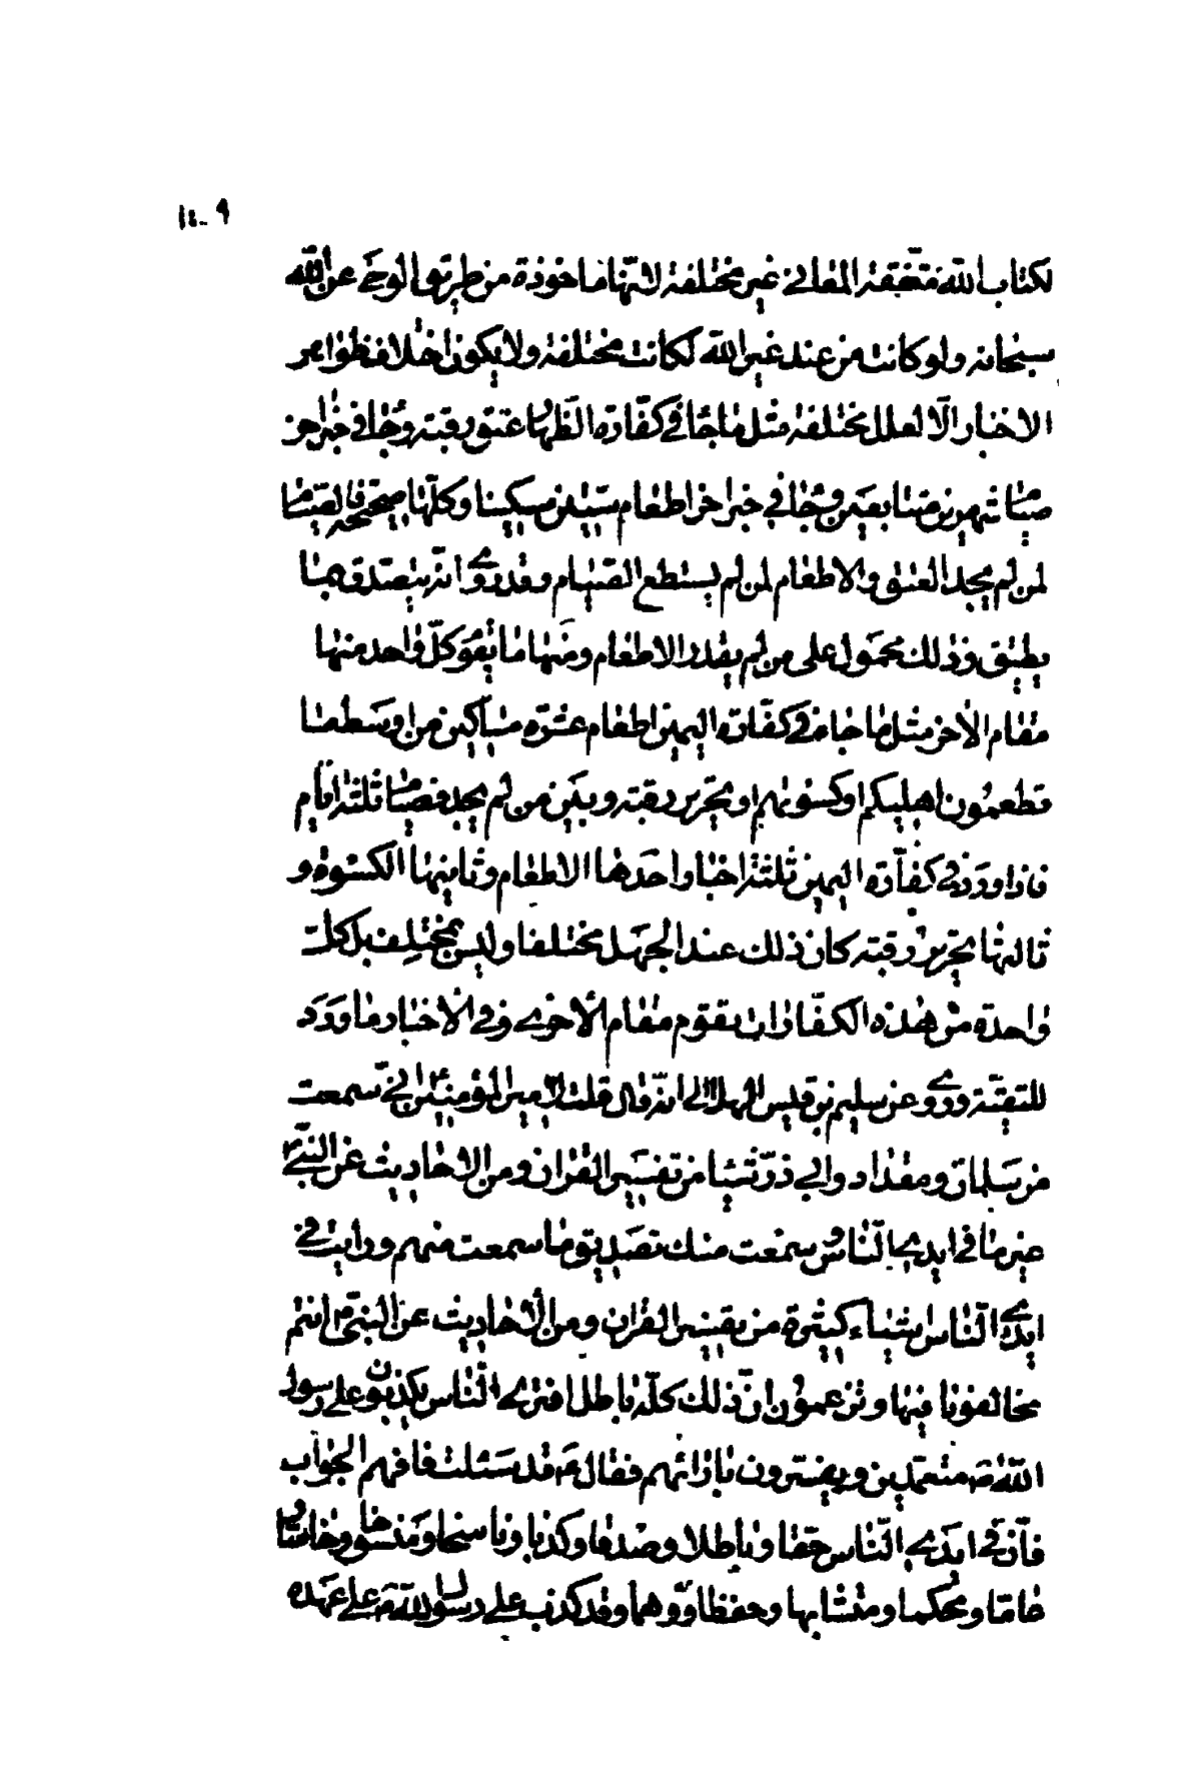 ١٤٠٩
لكتاب اللّه متّفقة المعاني غير مختلفة لانّها ماخوذة من طريق الوحي عن اللّه
سبحانه ولو كانت من عند غير اللّه لكانت مختلفة ولا يكون اختلاف ظواهر
الاخبار الّا لعلل مختلفة مثل ما جاء في كفّارة الظّهار عتق رقبة وجاء في خبر اخر
صيام شهرين متتابعين وجاء في خبر اخر اطعام ستّين مسكينا وكلّها صحيحة فالصيام
لمن لم يجد العتق والاطعام لمن لم يستطع الصّيام وقد روي انّه يتصدق بما
يطيق وذلك محمول على من لم يقدر الاطعام ومنها ما يقوم كلّ واحد منها
مقام الاخر مثل ما جاء في كفّارة اليمين اطعام عشرة مساكين من اوسط ما
تطعمون اهليكم او كسوتهم او تحرير رقبة وبين من لم يجد فصيام ثلثة ايّام
فاذا ورد في كفّارة اليمين ثلثة اخبار احدها الاطعام وثانيها الكسوة و
ثالثها تحرير رقبة كان ذلك عند الجهل مختلفا وليس بمختلف بل كل
واحدة من هذه الكفّارات يقوم مقام الاخرى وفي الاخبار ما ورد
للتقيّة وروي عن سليم بن قيس الهلالي انّه قال قلت لامير المؤمنين ع انّي سمعت
من سلمان ومقداد وابي ذرّ شيئا من تفسير القران ومن الاحاديث عن النّبيّ ص
غير ما في ايدي النّاس ثم سمعت منك تصديق ما سمعت منهم ورايت في
ايدي النّاس اشياء كثيرة من تفسير القران ومن الاحاديث عن النبيّ ص انتم
تخالفونا فيها وتزعمون انّ ذلك كلّه باطل افترى النّاس يكذبون على رسول
اللّه ص متعمّدين ويفسّرون بارائهم فقال ع قد سئلت فافهم الجواب
فانّ في ايدي النّاس حقا وباطلا وصدقا وكذبا وناسخا ومنسوخا وخاصّا و
عامّا ومحكما ومتشابها وحفظا ووهما وقد كذب على رسول اللّه ص على عهده